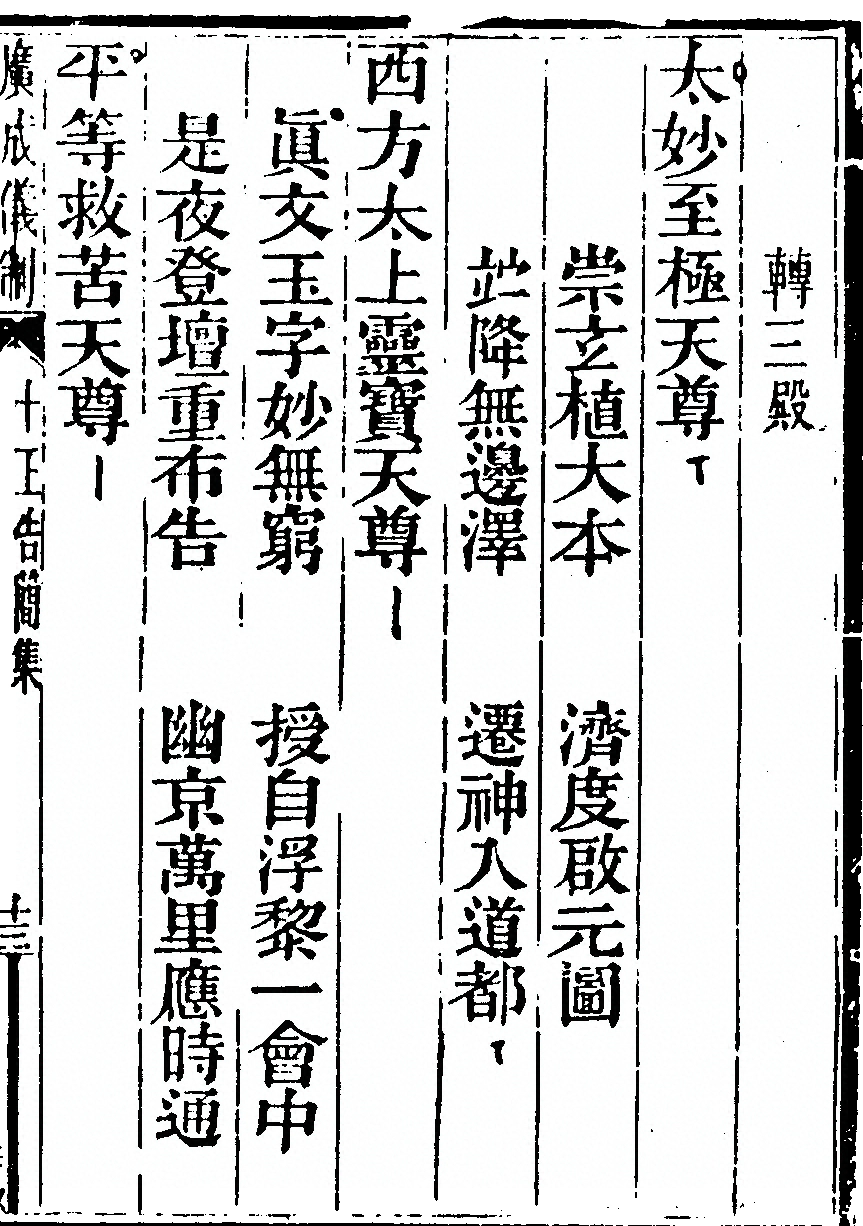 轉三殿
太妙至極天尊
崇立植大本　濟度啟元圖
竝降無邊澤　遷神入道都
西方太上靈寶天尊
眞文玉字妙無窮　授自浮黎一會中
是夜登壇重布告　幽京萬里應時通
平等救苦天尊
廣成儀制　十王告簡集　十三